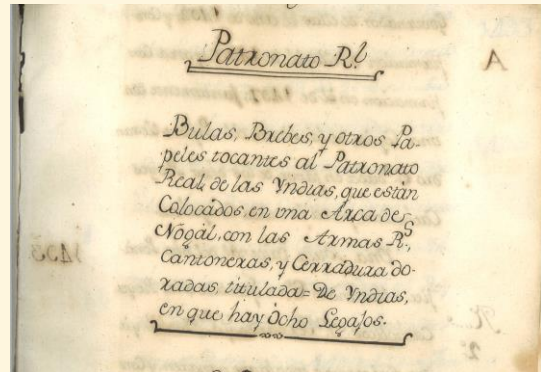 Patronato Rl.
A
Bulas, Brebes, y otros Pa-
peles tocantes al Patronato
Real de las Yndias, que están
Colocádos en vna Arca de
Nogál, con las Armas Rs.,
Cantoneras, y Cerradura do-
radas, titulada = De Yndias,
en que hay Ócho Legajos.